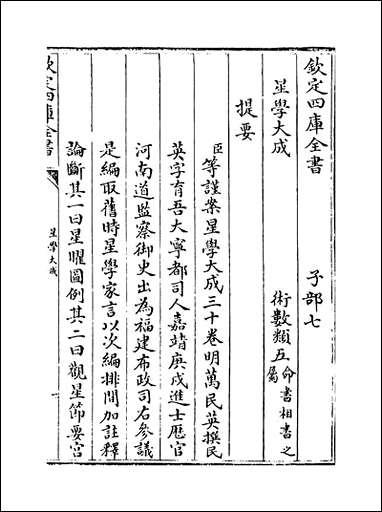 欽定四庫全書　子部七
星學大成　術數類五命書相書之屬
提要
臣等謹案星學大成三十卷明萬民英撰民
英字育吾大寧都司人嘉靖庚戌進士歷官
河南道監察御史出為福建布政司右參議
是編取舊時星學家言以次編排間加註釋
論斷其一曰星曜圖例其二曰觀星節要宮
欽定四庫全書
星學大成
一